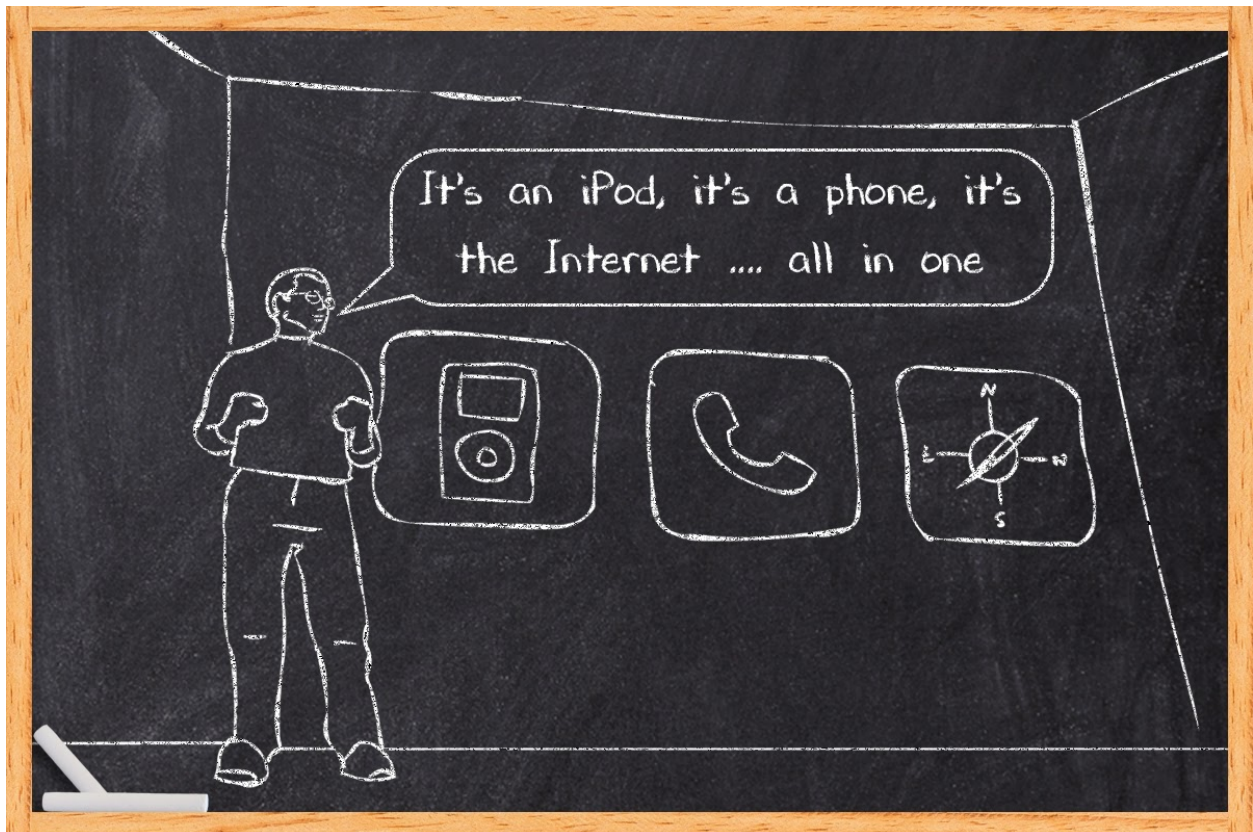 It's an iPod, it's a phone, it's
the Internet .... all in one
N
E N
S